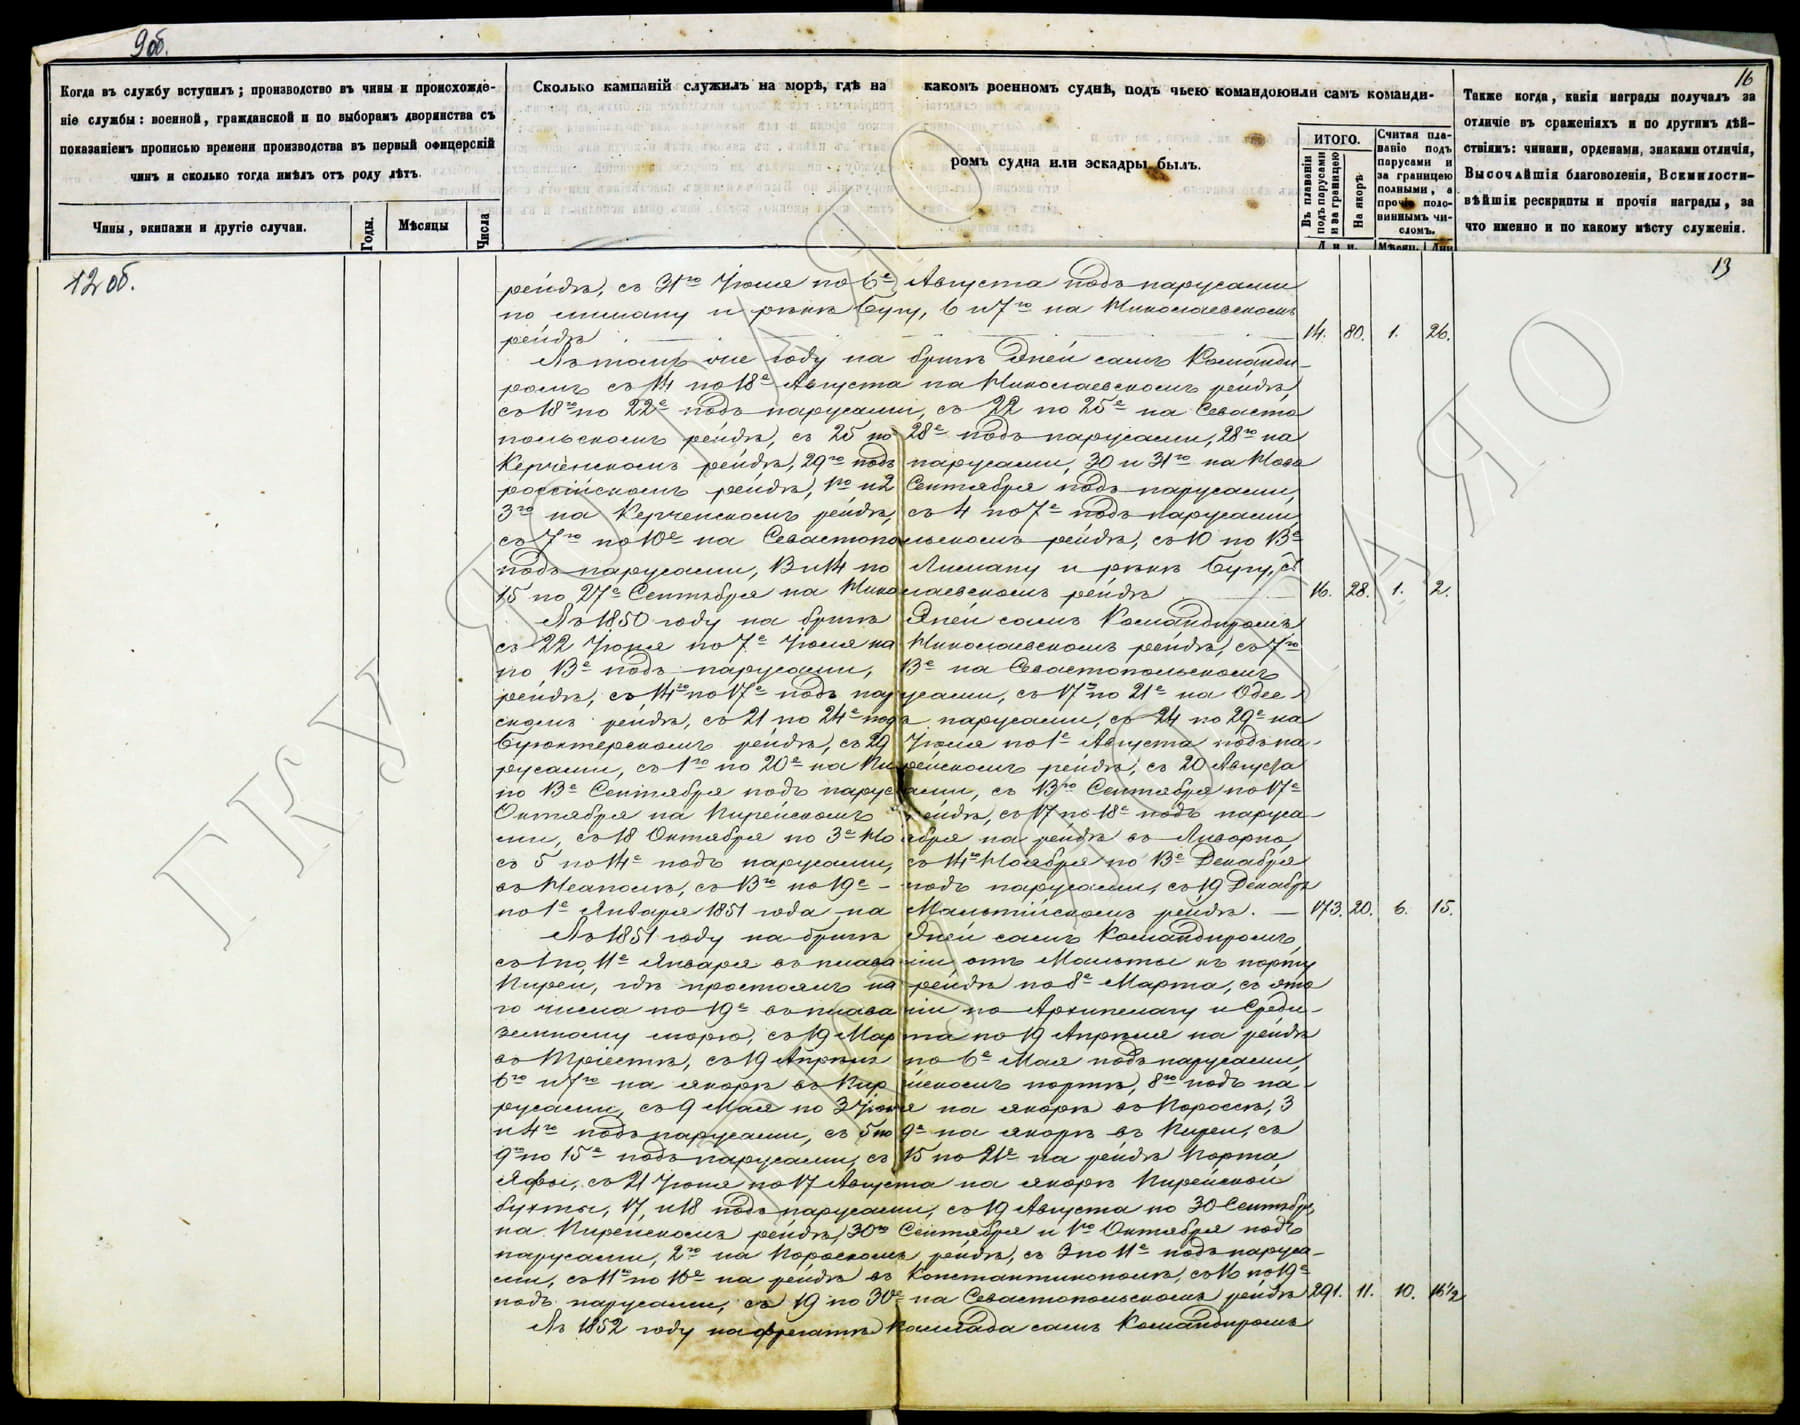 9об.
16
Когда въ службу вступилъ; производство въ чины и происхожде-
ніе службы: военной, гражданской и по выборамъ дворянства съ
показаніемъ прописью времени производства въ первый офицерскій
чинъ и сколько тогда имѣлъ отъ роду лѣтъ.
Чины, экипажи и другіе случаи.
Годы.
Мѣсяцы
Числа
Сколько кампаній служилъ на морѣ, гдѣ на каком военномъ суднѣ, подъ чьею командоюили самъ команди-
ромъ судна или эскадры былъ.
ИТОГО.
Въ плаваніи
подъ парусами
и за границею
На якорѣ
Дни.
Считая пла-
ваніе подъ
парусами и
за границею
полными, а
прочіе поло-
виннымъ чи-
сломъ.
Мѣсяц. Дни
Также когда, какія награды получалъ за
отличіе въ сраженіяхъ и по другимъ дѣй-
ствіямъ: чинами, орденами, знаками отличія,
Высочайшія благоволенія, Всемилости-
вѣйшіе рескрипты и прочія награды, за
что именно и по какому мѣсту служенія.
12 об.
13
рейдѣ, съ 31го Іюля по 6е Августа подъ парусами
по лиману и рѣкѣ Бугу, 6 и 7го на Николаевскомъ
рейдѣ 14. 80. 1. 26.
Въ томъ же году на бригѣ Эней самъ Команди-
ромъ съ 14 по 18е Августа на Николаевскомъ рейдѣ,
съ 18го по 22е подъ парусами, съ 22 по 25е на Севасто
польскомъ рейдѣ, съ 25 по 28е подъ парусами, 28го на
Керченскомъ рейдѣ, 29го подъ парусами, 30 и 31го на Ново
россійскомъ рейдѣ, 1го и 2 Сентября подъ парусами,
3го на Керченскомъ рейдѣ, съ 4 по 7е подъ парусами,
съ 7го по 10е на Севастопольскомъ рейдѣ, съ 10 по 13е
подъ парусами, 13 и 14 по Лиману и рѣкѣ Бугу, съ
15 по 27е Сентября на Николаевскомъ рейдѣ 16. 28. 1. 2.
Въ 1850 году на бригѣ Эней самъ Командиромъ
съ 22 Іюня по 7е Іюля на Николаевскомъ рейдѣ, съ 7го
по 13е подъ парусами, 13е на Севастопольскомъ
рейдѣ, съ 14го по 17е подъ парусами, съ 17го по 21е на Одес-
скомъ рейдѣ, съ 21 по 24е подъ парусами, съ 24 по 29е на
Буюкдерскомъ рейдѣ, съ 29 Іюля по 1е Августа подъ па-
русами, съ 1го по 20е на Пирейскомъ рейдѣ, съ 20 Августа
по 13е Сентября подъ парусами, съ 13го Сентября по 17е
Октября на Пирейскомъ рейдѣ, съ 17 по 18е подъ паруса-
ми, съ 18 Октября по 3е Ноября на рейдѣ въ Ливорно,
съ 5 по 14е подъ парусами, съ 14го Ноября по 13е Декабря
въ Неаполѣ, съ 13го по 19е - подъ парусами, съ 19 Декабря
по 1е Января 1851 года на Мальтійскомъ рейдѣ. 173. 20. 6. 15.
Въ 1851 году на бригѣ Эней самъ Командиромъ,
съ 1 по 11е Января въ плаваніи отъ Мальты къ порту
Пиреи, гдѣ простоялъ на рейдѣ по 8е Марта, съ это
го числа по 19е въ плаваніи по Архипелагу и Среди-
земному морю, съ 19 Марта по 19 Апрѣля на рейдѣ
въ Тріестѣ, съ 19 Апрѣля по 6е Мая подъ парусами,
6го и 7го на якорѣ въ Пирейскомъ портѣ, 8го подъ па-
русами, съ 9 Мая по 3 Іюня на якорѣ въ Поросѣ, 3
и 4го подъ парусами, съ 5 по 9е на якорѣ въ Пиреи, съ
9го по 15е подъ парусами, съ 15 по 21е на рейдѣ Порта
Яфы, съ 21 Іюня по 17 Августа на якорѣ Пирейской
бухты, 17 и 18 подъ парусами, съ 19 Августа по 30 Сентября,
на Пирейскомъ рейдѣ, 30го Сентября и 1го Октября подъ
парусами, 2го на Поросскомъ рейдѣ, съ 3 по 11е подъ паруса-
ми, съ 11го по 16е на рейдѣ въ Константинополѣ, съ 16 по 19е
подъ парусами, съ 19 по 30е на Севастопольскомъ рейдѣ 291. 11. 10. 16½
Въ 1852 году на фрегатѣ Паллада самъ Командиромъ